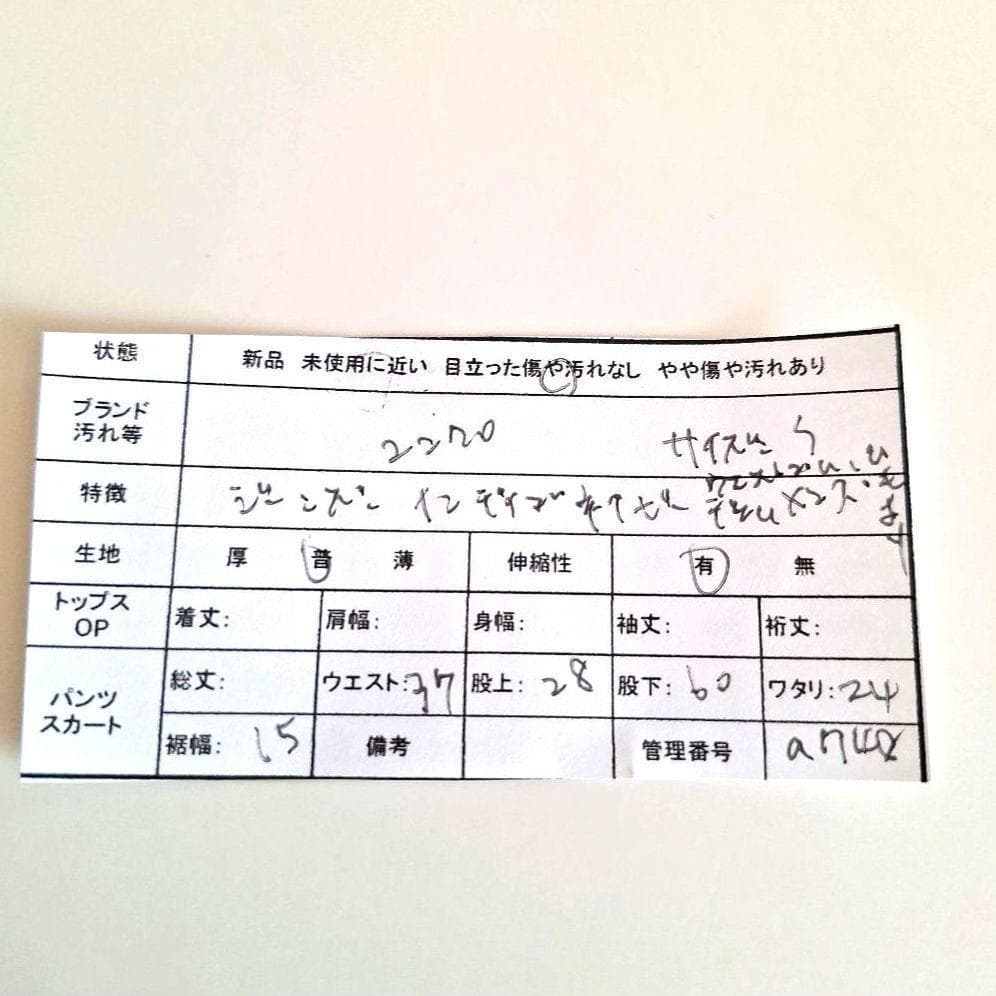 状態 新品 未使用に近い 目立った傷や汚れなし やや傷や汚れあり
ブランド
汚れ等
2270 サイズ
特徴 ジーンズ インディゴ ネイビー メンズ
生地 厚 普 薄 伸縮性 有 無
トップス
OP
着丈: 肩幅: 身幅: 袖丈: 裄丈:
パンツ
スカート
総丈: ウエスト:37 股上:28 股下:60 ワタリ:24
裾幅:15 備考 管理番号